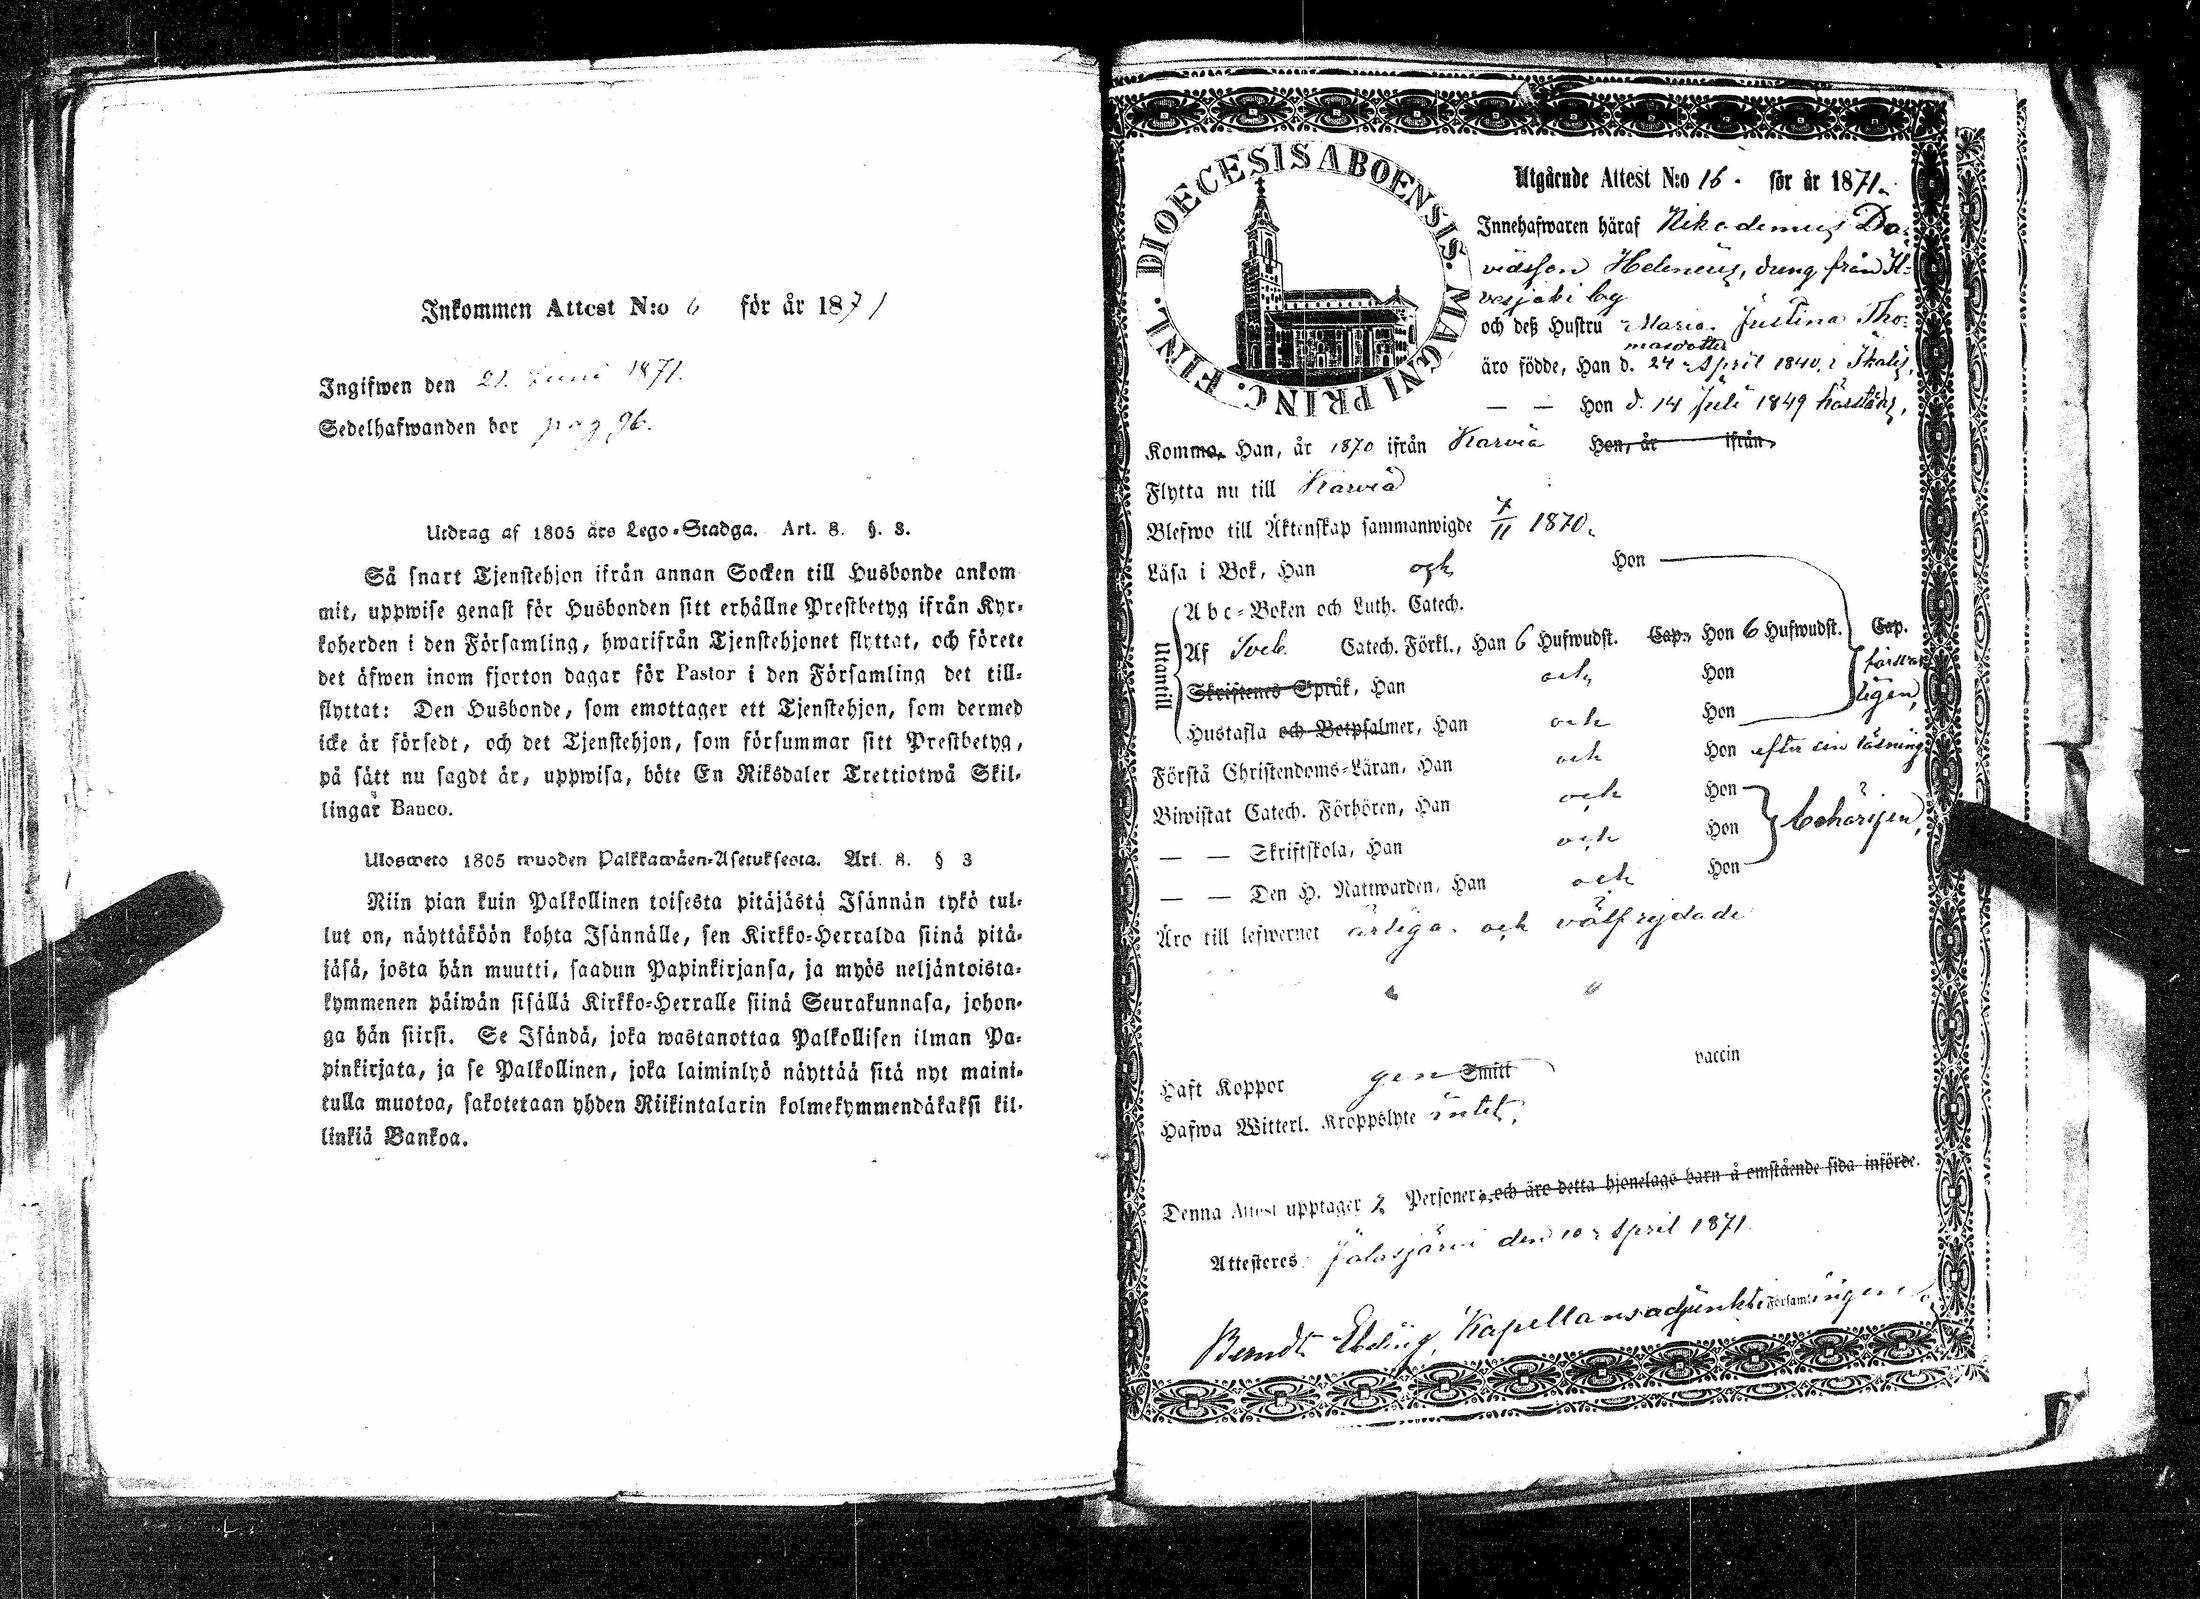 Inkommen Attest N:o 6 för år 1871
Ingifwen den 21. Juni 1871.
Sedelhafwanden bor pag 96.
Utdrag af 1805 års Lego-Stadga. Art. 8. §. 3.
Så snart Tjenstehjon ifrån annan Socken till Husbonde ankom
mit, uppwise genast för Husbonden sitt erhållne Prestbetyg ifrån Kyr-
koherden i den Församling, hwarifrån Tjenstehjonet flyttat, och förete
det äfwen inom fjorton dagar för Pastor i den Församling det till-
flyttat: Den Husbonde, som emottager ett Tjenstehjon, som dermed
icke är försedt, och det Tjenstehjon, som försummar sitt Prestbetyg,
på sätt nu sagdt är, uppwisa, böte En Riksdaler Trettiotwå Skil-
lingar Banco.
Ulosweto 1805 wuoden Palkkawäen-Asetuksesta. Art. 8. § 3
Niin pian kuin Palkollinen toisesta pitäjästä Isännän tykö tul-
lut on, näyttäköön kohta Isännälle, sen Kirkko-Herralda siinä pitä-
jäsä, josta hän muutti, saadun Papinkirjansa, ja myös neljäntoista-
kymmenen päiwän sisällä Kirkko-Herralle siinä Seurakunnasa, johon-
ga hän siirsi. Se Isändä, joka wastanottaa Palkollisen ilman Pa-
pinkirjata, ja se Palkollinen, joka laiminlyö näyttää sitä nyt maini-
tulla muotoa, sakotetaan yhden Riikintalarin kolmekymmendäkaksi kil-
linkiä Bankoa.
DIOECESIS ABOENSIS. MAGNI PRINC. FINL.
Utgående Attest N:o 16. för år 1871.
Innehafwaren häraf Nikodemus Da-
vidsson Helenius, dräng från
by
och deß Hustru Maria Justina Tho-
masdotter
äro födde, Han d. 24 April 1840, i Ikalis,
— — Hon d. 14 Juli 1849 härstädes,
Komma, Han, år 1870 ifrån Karvia Hon, år ifrån,
Flytta nu till Karvia
Blefwo till Äktenskap sammanwigde 7/11 1870.
Läsa i Bok, Han och Hon
Utantill
Abc-Boken och Luth. Catech.
Af Sveb. Catech. Förkl., Han 6 Hufwudst. Cap., Hon 6 Hufwudst. Cap.
Skriftenes Språk, Han och Hon försvar-
ligen,
Hustafla och Botpsalmer, Han och Hon
Förstå Christendoms-Läran, Han och Hon efter sin läsning
Biwistat Catech. Förhören, Han och Hon
— — Skriftskola, Han och Hon behörigen,
— — Den H. Nattwarden, Han och Hon
Äro till lefwernet ärliga och välfrejdade
Haft Koppor gen Smitt vaccin
Hafwa Witterl. Kroppslyte intet,
Denna Attest upptager 2 Personer, och äro detta hjonelags barn å omstående sida införde.
Attesteres: Jalasjärvi den 10 April 1871.
Berndt Kapellansadjunkt i Församlingen